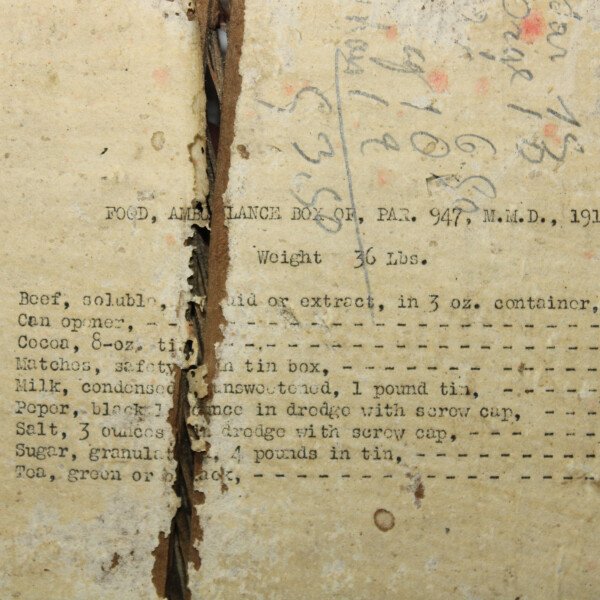 FOOD, AMBULANCE BOX OF, PAR. 947, M.M.D., 191
Weight 36 Lbs.
Beef, soluble, liquid or extract, in 3 oz. container,
Can opener, - - - - - - - - - - - - - - - - - - - - -
Cocoa, 8-oz. tin - - - - - - - - - - - - - - - - - - -
Matches, safety in tin box, - - - - - - - - - - - - -
Milk, condensed unsweetened, 1 pound tin, - - - - -
Peper, black 1 ounce in dredge with screw cap, - - -
Salt, 3 ounces in dredge with screw cap, - - - - - -
Sugar, granulated, 4 pounds in tin, - - - - - - - - -
Tea, green or black, - - - - - - - - - - - - - - - - -